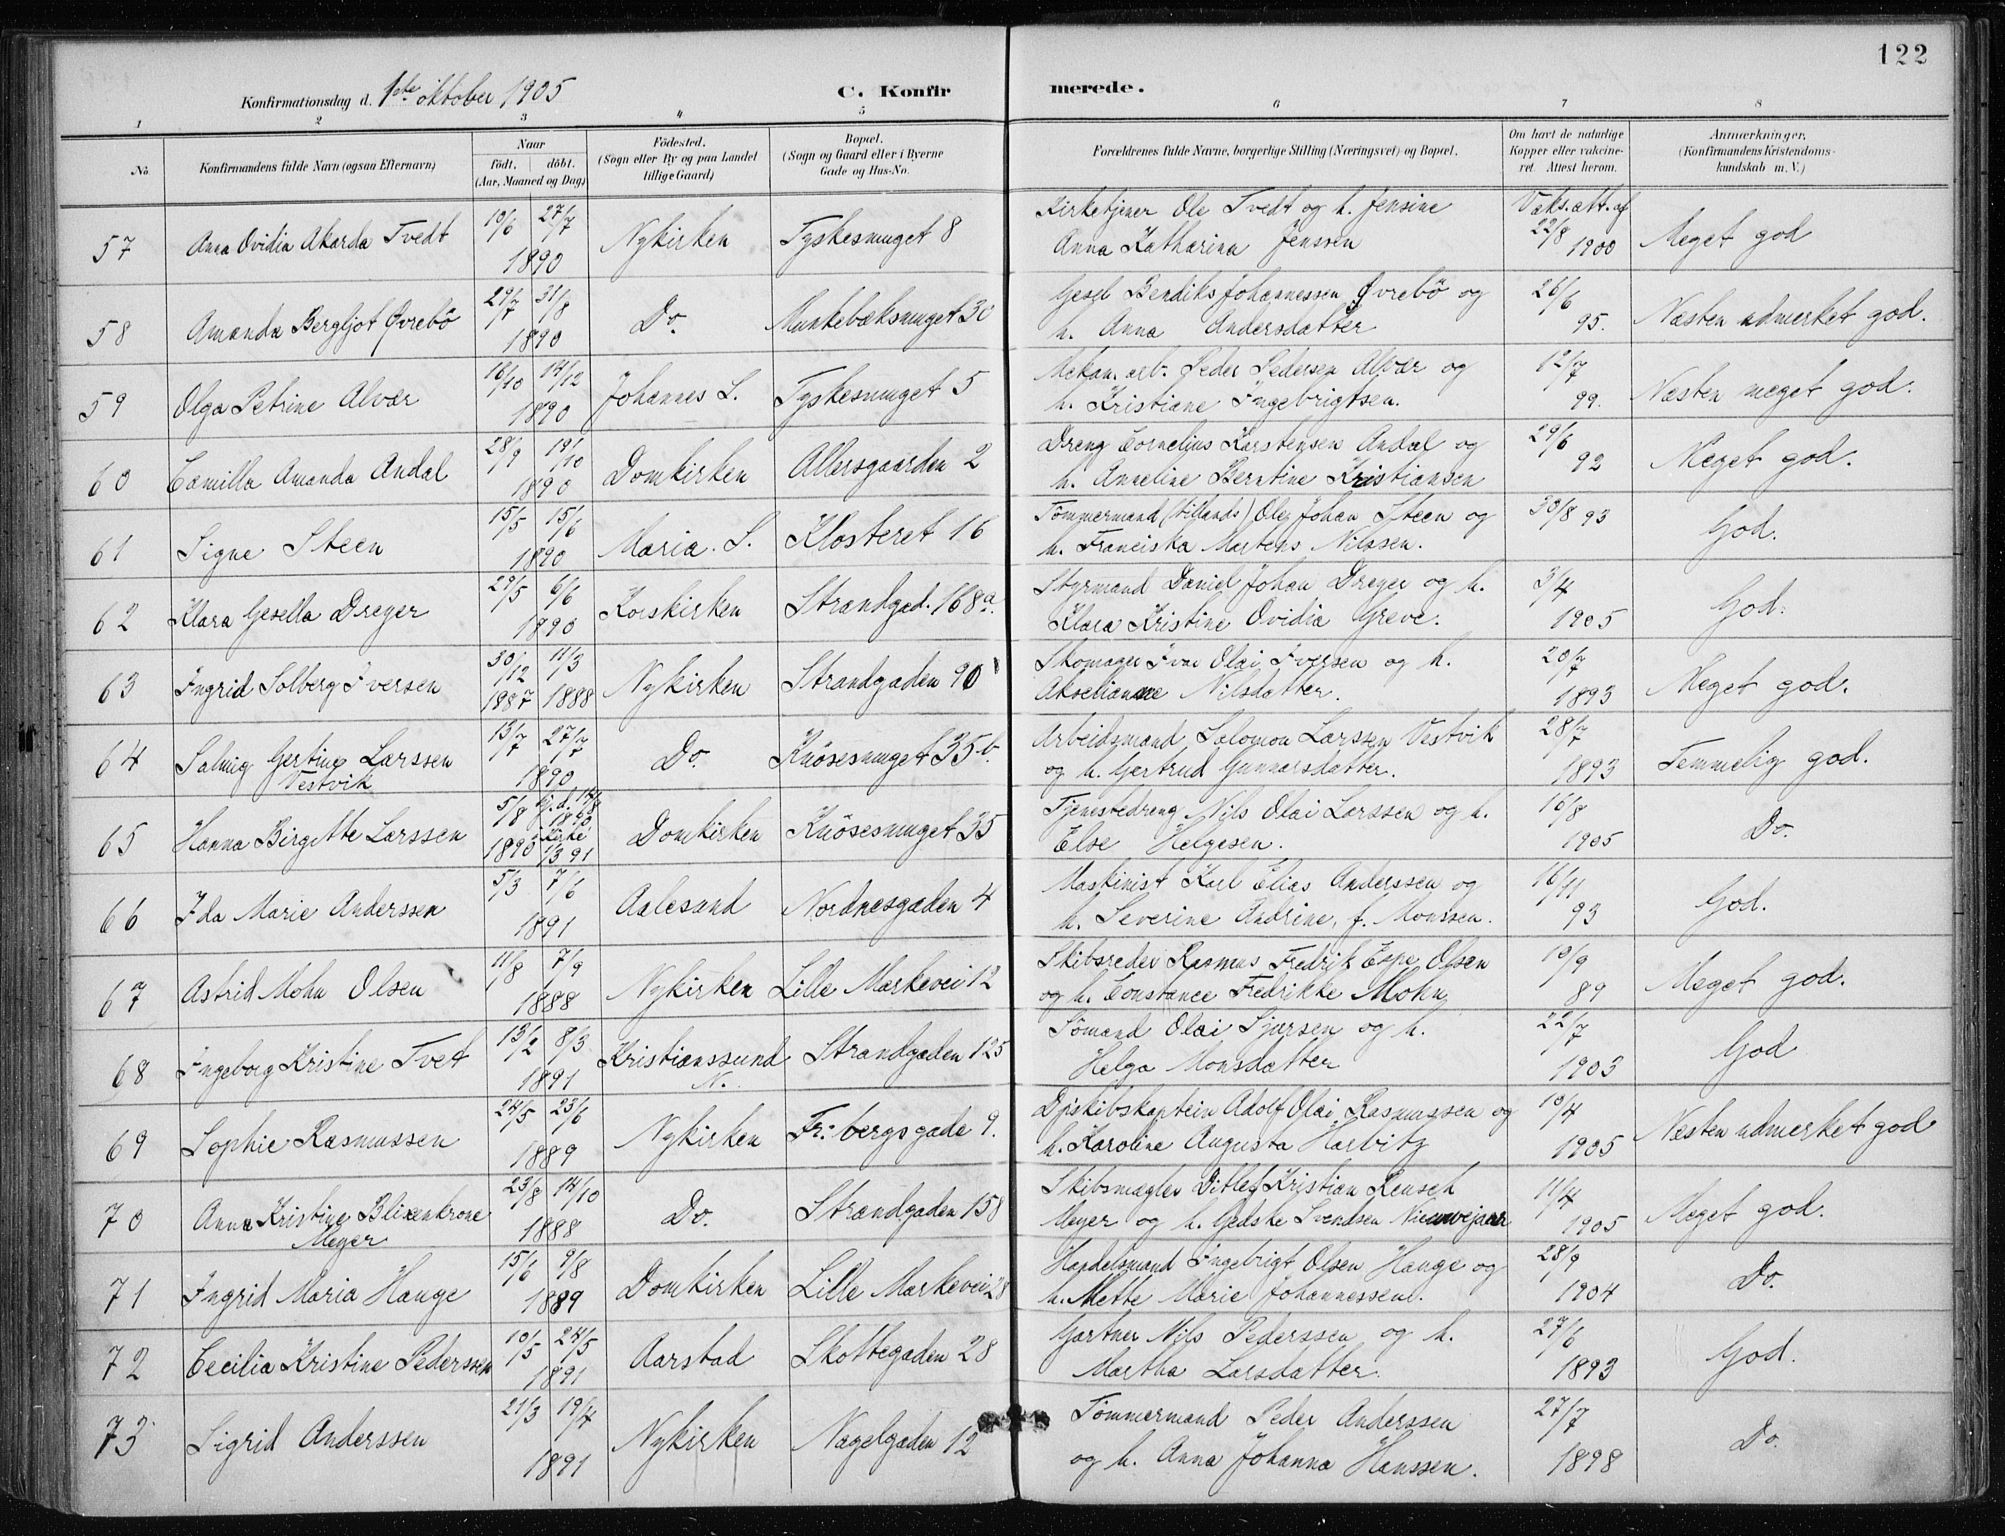 122
Konfirmationsdag d. 1ste oktober 1905 C. Konfirmerede.
1 2 3 4 5 6 7 8
No. Konfirmandens fulde Navn (ogsaa Efternavn). Naar født, døbt. (Aar, Maaned og Dag) Fødested. (Sogn eller By og paa Landet tillige Gaard) Bopæl. (Sogn og Gaard eller i Byerne Gade og Hus-No. Forældrenes fulde Navne, borgerlige Stilling (Næringsvei) og Bopæl. Om havt de naturlige Kopper eller vakcineret. Attest herom. Anmærkninger. (Konfirmandens Kristendomskundskab m. V.)
57 Anna Ovidia Akarda Tvedt 10/6 27/7 1890 Nykirken Tyskesmuget 8 Kirketjener Ole Tvedt og h. Jensine Anna Katharina Jenssen Vaks. att. af 22/8 1900 Meget god
58 Amanda Bergljot Øvrebö 29/7 31/8 1890 Do. Munkebæksmuget 30 Gesel Bendiks Johannessen Øvrebö og h. Anna Andersdatter 26/6 95. Næsten udmerket god.
59 Olga Petrine Alvær 16/10 14/12 1890 Johannes S. Tyskesmuget 5 Mekan. arb. Peder Pedersen Alvær og h. Kristiane Ingebrigtsen. 12/7 99. Næsten meget god.
60 Camilla Amanda Andal 28/9 19/10 1890 Domkirken Allersgaarden 2 Dreng Cornelius Karstensen Andal og h. Anneline Berntine Kristiansen 29/6 92 Meget god.
61 Signe Steen 15/5 15/6 1890 Maria. S. Klosteret 16 Tömmermand (tillands) Ole Johan Steen og h. Franciska Martens Nilssen. 30/8 93 God.
62 Klara Gesella Dreyer 29/5 6/6 1890 Korskirken Strandgad. 168a. Styrmand Daniel Johan Dreyer og h. Klara Kristine Ovidia Greve. 3/4 1905 God.
63 Ingrid Solberg Iversen 30/12 1887 11/3 1888 Nykirken Strandgaden 90 Skomager Ivar Olai Iversen og h. Akselianne Nilsdatter. 20/7 1893 Meget god.
64 Salmig Gertine Larssen Vestvik 13/7 27/7 1890 Do. Knösesmuget 35b. Arbeidsmand Salomon Larssen Vestvik og h. Gertrud Gunnarsdatter. 28/7 1893 Temmelig god.
65 Hanna Birgitte Larssen 5/8 1890 hj.d. 14/8 1890 i Kirke 1/3 91 Domkirken Knösesmuget 35 Tjenestedreng Nils Olai Larssen og h. Else Helgesen. 16/8 1905 Do.
66 Ida Marie Anderssen 5/3 7/6 1891 Aalesund Nordnesgaden 4 Maskinist Karl Elias Anderssen og h. Severine Andrine, f. Monssen. 16/11 93 God.
67 Astrid Mohn Olsen 11/8 7/9 1888 Nykirken Lille Markevei 12 Skibsreder Rasmus Fredrik Espe Olsen og h. Constance Fredrikke Mohn 10/9 89 Meget god.
68 Ingeborg Kristine Tvet 13/2 8/3 1891 Kristianssund N. Strandgaden 125 Sömand Olai Sjursen og h. Helga Monsdatter 22/7 1903 God
69 Sophie Rasmussen 24/5 23/6 1889 Nykirken Fr: bergsgade 9. Dpskibskaptein Adolf Olai Rasmussen og h. Karoline Augusta Harbitz 10/4 1905 Næsten udmerket god
70 Anna Kristine Blixenkrone Meyer 23/8 14/10 1888 Do. Strandgaden 158 Skibsmægler Ditlef Kristian Reusch Meyer og h. Gedske Svendsen Nieuwejaar 11/4 1905 Meget god.
71 Ingrid Maria Hauge 15/6 9/8 1889 Domkirken Lille Markevei 28 Handelsmand Ingebrigt Olsen Hauge og h. Mette Marie Johannessen. 28/9 1904 Do.
72 Cecilia Kristine Pederssen 10/5 24/5 1891 Aarstad Skottegaden 28 Gartner Nils Pederssen og h. Martha Larsdatter. 27/6 1893 God.
73 Sigrid Anderssen 21/3 19/4 1891 Nykirken Nøgelgaden 12 Tömmermand Peder Anderssen og h. Anna Johanna Hanssen. 27/7 1898 Do.